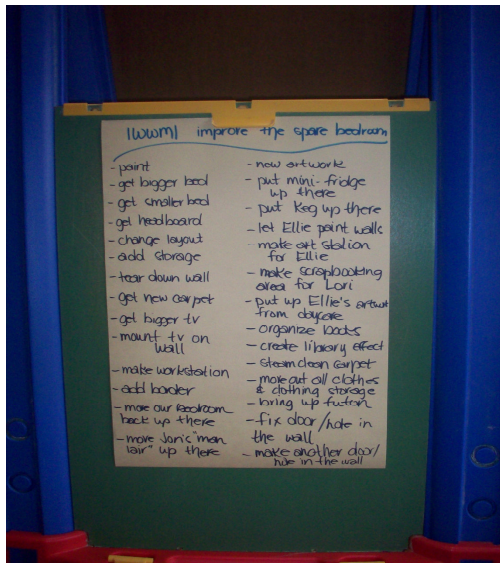 IWWMI improve the spare bedroom
- paint
- get bigger bed
- get smaller bed
- get headboard
- change layout
- add storage
- tear down wall
- get new carpet
- get bigger tv
- mount tv on
wall
- make workstation
- add border
- move our bedroom
back up there
- move Jon's "man
lair" up there
- new artwork
- put mini-fridge
up there
- put keg up there
- let Ellie paint walls
- make art station
for Ellie
- make scrapbooking
area for Lori
- put up Ellie's artwork
from daycare
- organize books
- create library effect
- steam clean carpet
- move out all clothes
& clothing storage
- bring up futon
- fix door/hole in
the wall
- make another door/
hole in the wall